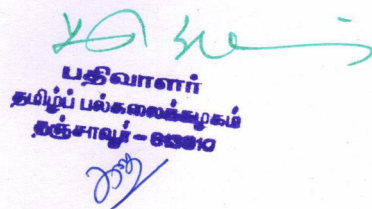 பதிவாளர்
தமிழ்ப் பல்கலைக்கழகம்
தஞ்சாவூர் - 613010